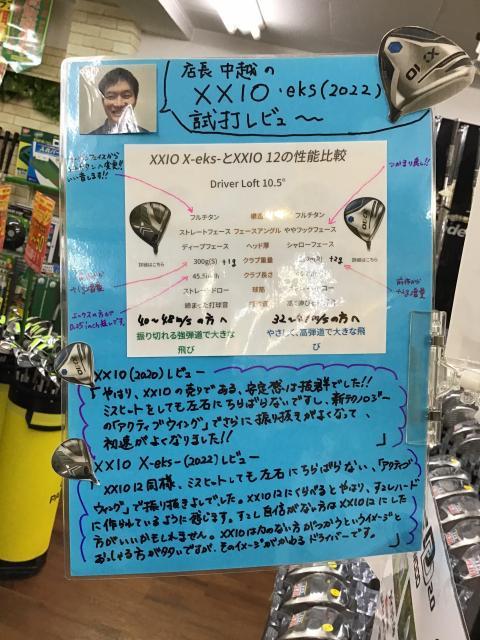 店長 中越の
XXIO・eks(2022)
試打レビュ〜
XXIO
XXIO X-eks-とXXIO 12の性能比較
Driver Loft 10.5°
つかまり良し!!
フルチタン フルチタン
ストレートフェース フェースアングル ややフックフェース
ディープフェース ヘッド厚 シャローフェース
詳細はこちら 300g(S) +1g クラブ重量 +2g 詳細はこちら
45.5inch クラブ長さ
ストレートドロー 弾道
締まった打球音
エックスの方が
0.25inch短いです。
40〜48m/sの方へ
振り切れる強弾道で大きな
飛び
の方へ
やさしく、高弾道で大きな飛
び
XXIO(2020)レビュー
「やはり、XXIOの売りである、安定感は抜群でした!!
ミスヒートをしても左右にちらばらないですし、新テクノロジー
の「アクティブウイング」でさらに振り抜きがよくなって、
初速がよくなりました!!」
XXIO X-eks-(2022)レビュー
「XXIO12同様、ミスヒットしても左右にちらばらない、「アクティブ
ウイング」で振り抜きよしでした。XXIO12にくらべるとやはり、すこしハード
に作られているように感じます。すこし自信がない方はXXIO12にした
方がいいかもしれません。XXIOは力のない方がつかうというイメージと
おっしゃる方が多いですが、そのイメージがかわるドライバーです。」